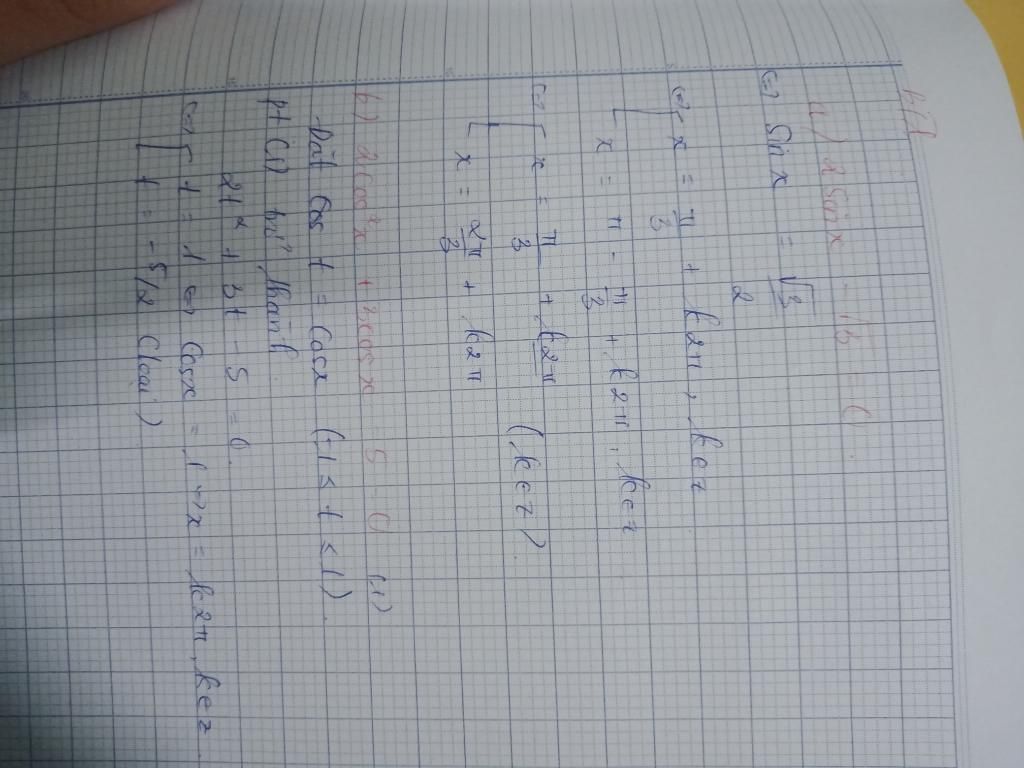 a) 2 sin x - √3 = 0
<=> sin x = √3/2
<=> [ x = π/3 + k2π, k∈z
x = π - π/3 + k2π, k∈z
<=> [ x = π/3 + k2π (k∈z).
x = 2π/3 + k2π
b) 2cos²x + 3cos x - 5 = 0 (1)
Đặt cos t = cosx (-1 ≤ t ≤ 1).
pt (1) trở thành
2t² + 3t - 5 = 0.
<=> [ t = 1 <=> cosx = 1 <=> x = k2π, k∈z.
t = -5/2 (loại)